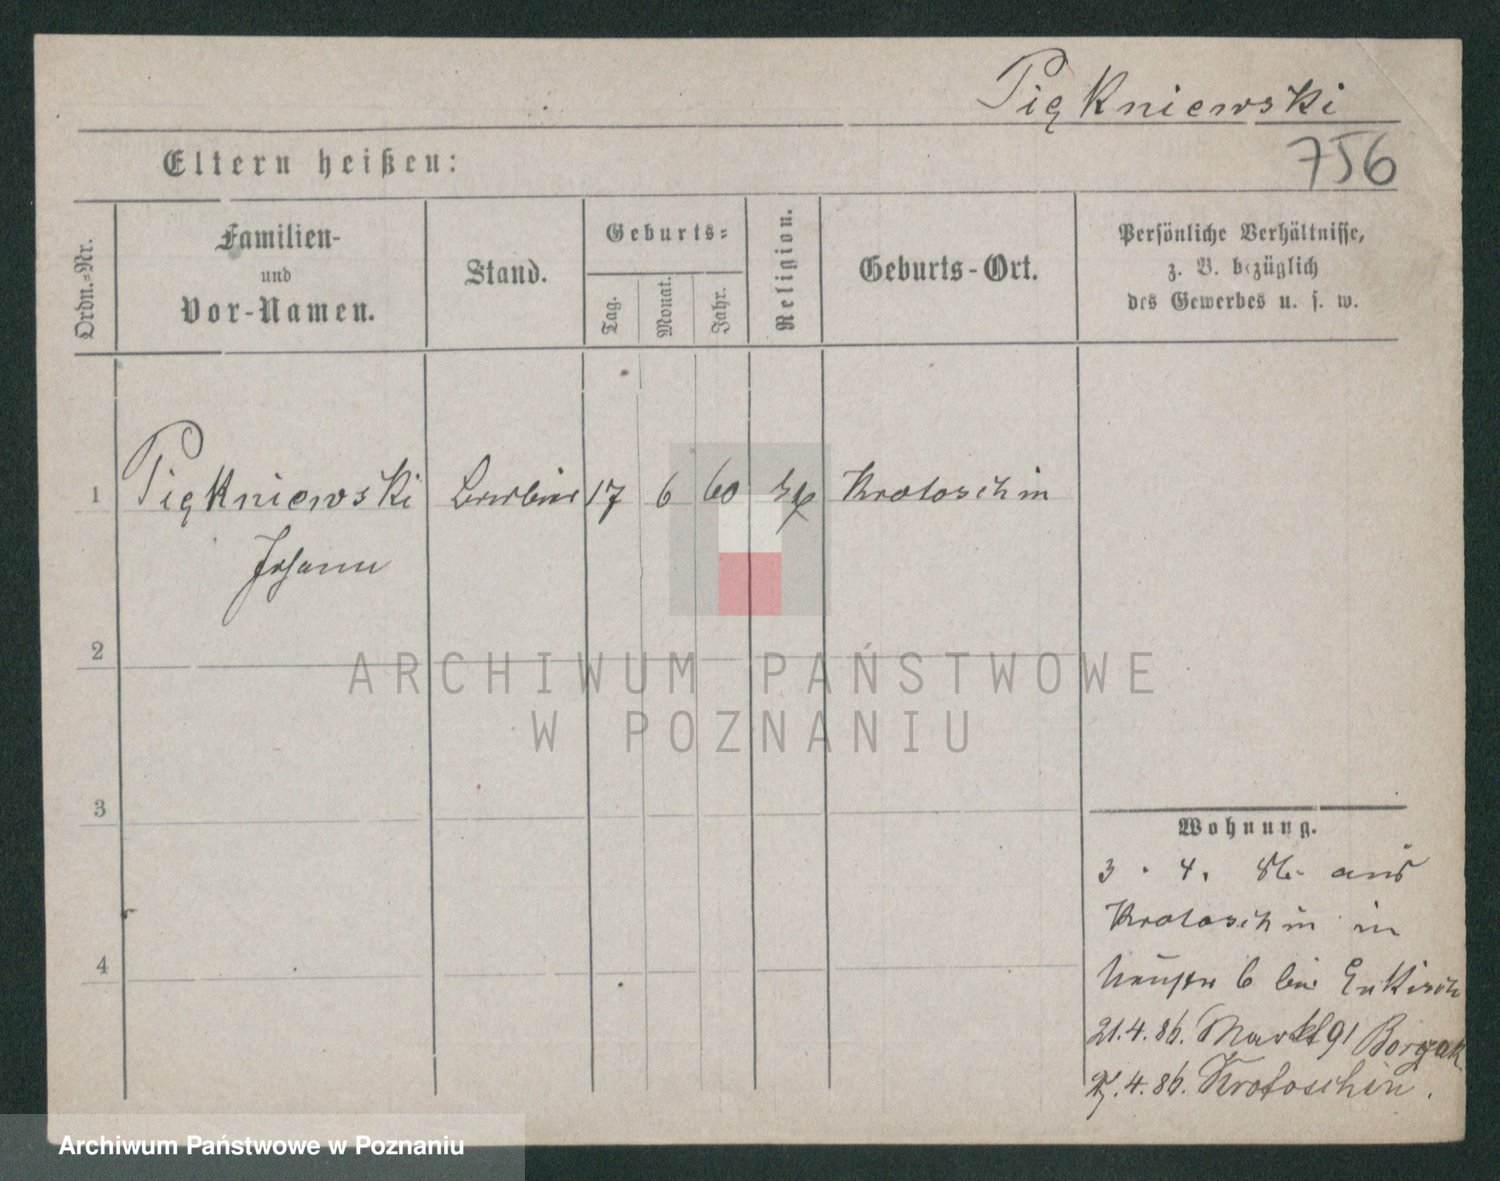 Piękniewski
756
Eltern heißen:
Ordn.-Nr.
Familien-
und
Vor-Namen.
Stand.
Geburts-
Tag.
Monat.
Jahr.
Religion.
Geburts-Ort.
Persönliche Verhältnisse,
z. B. bezüglich
des Gewerbes u. s. w.
1 Piękniewski 17 6 60 Krotoschin
Johann
2
3
4
ARCHIWUM PAŃSTWOWE
W POZNANIU
Wohnung.
3. 4. 86. aus
Krotoschin in
6 bei
21.4.86. Markt 91
4.86. Krotoschin.
Archiwum Państwowe w Poznaniu